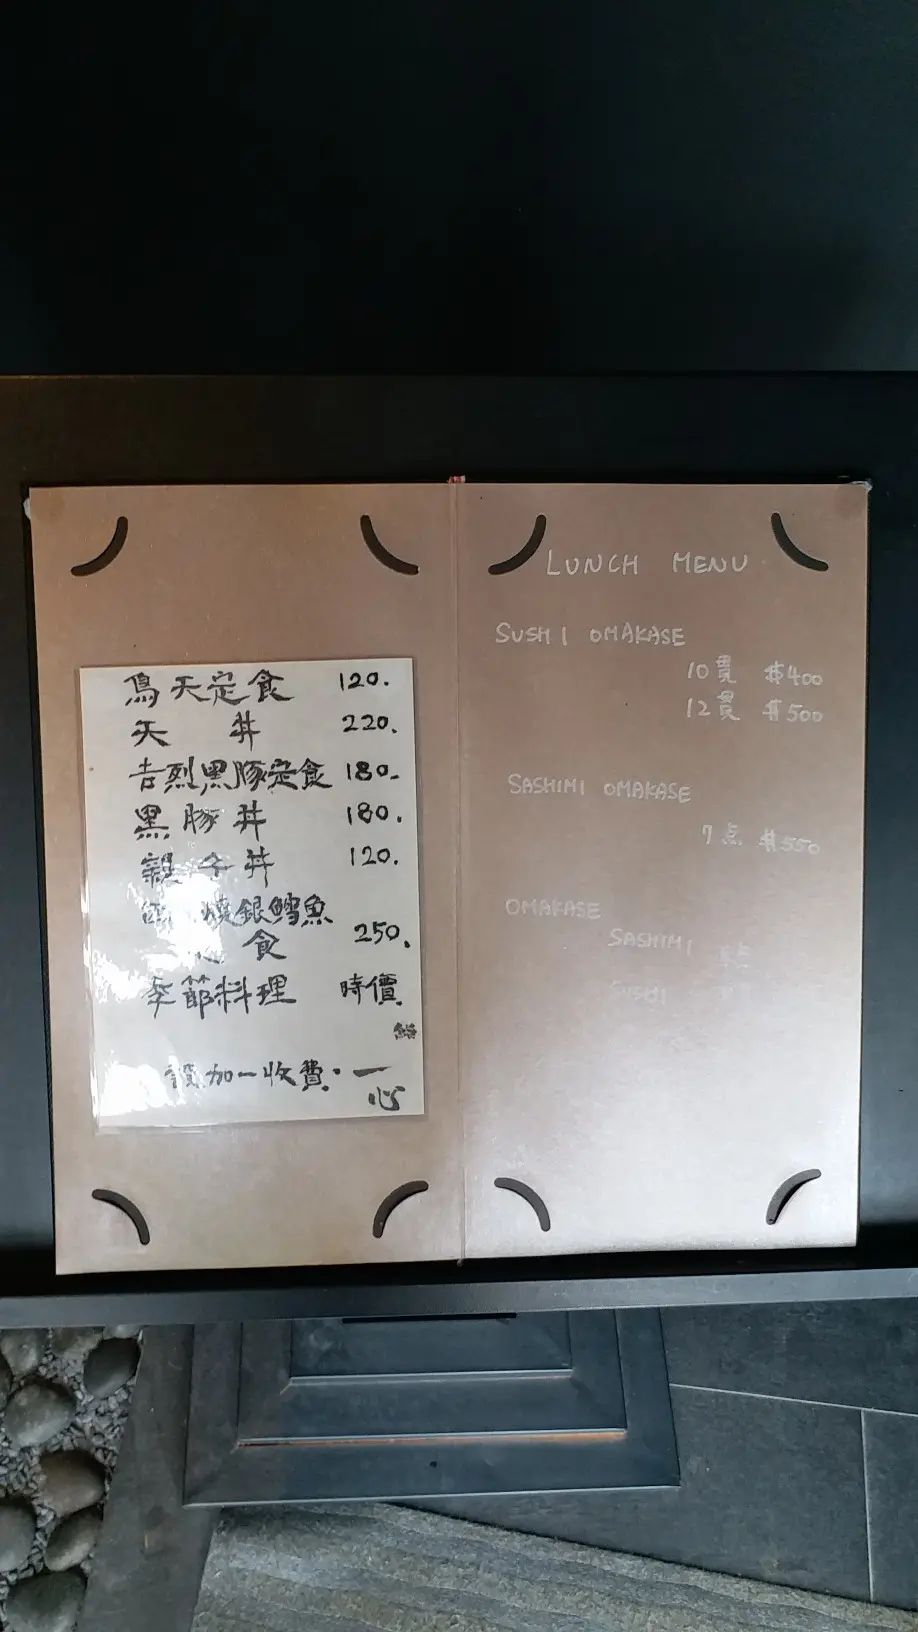 鳥天定食 120.
天丼 220.
吉烈黑豚定食 180.
黑豚丼 180.
親子丼 120.
燒銀鱈魚
食 250.
季節料理 時價
加一收費. 一
心
LUNCH MENU
SUSHI OMAKASE
10貫 $400
12貫 $500
SASHIMI OMAKASE
7点 $550
OMAKASE
SASHIMI
SUSHI